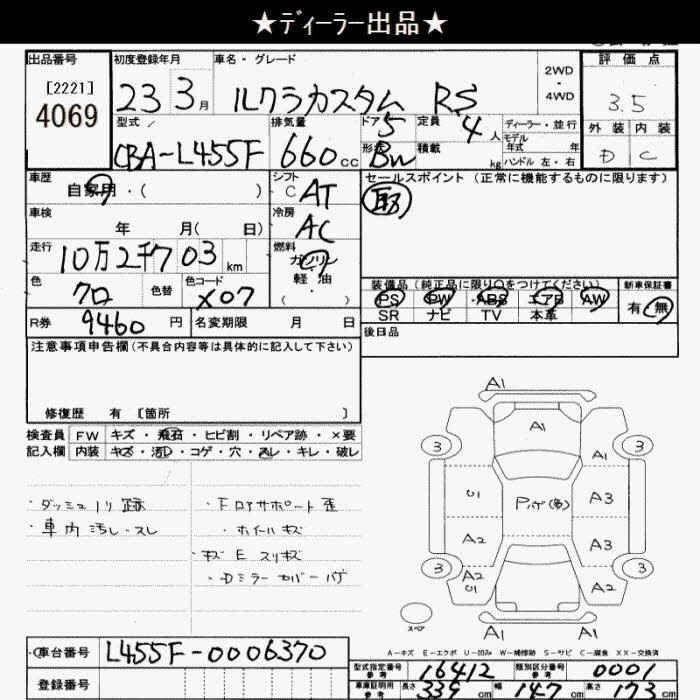 ★ディーラー出品★
出品番号
[2221]
4069
初度登録年月
23 3 月
車名・グレード
ルクラカスタム RS
2WD
・
4WD
評価点
3.5
外装 内装
D C
型式
CBA-L455F
排気量
660 cc
ドア 5
形状 BW
定員 4 人
積載 kg
ディーラー・並行
モデル
年式 年
ハンドル 左・右
車歴
自家用・( )
シフト
C AT
セールスポイント (正常に機能するものに限ります)
取
車検
年 月( 日)
冷房
AC
走行
10万2千703 km
燃料
ガソリン
軽油
( ・ )
色
クロ
色替
色コード
X07
装備品(純正品に限り○をつけてください)
PS PW ABS エアB AW
SR ナビ TV 本革
新車保証書
有・無
R券 9460 円
名変期限 月 日
後日品
注意事項申告欄(不具合内容等は具体的に記入して下さい)
修復歴 有 [箇所 ]
検査員 FW キズ・飛石・ヒビ割・リペア跡・×要
記入欄 内装 キズ・汚レ・コゲ・穴・スレ・キレ・破レ
・ダッシュノリ跡
・車内汚レ・スレ
・Fロアサポート歪
・ホイールキズ
・キズEスリキズ
・Dミラーカバーハゲ
A1
A1
3 A1 3
U1 Pハゲ(多) A3
A2 A3
3 A2 U1 A2 3
スペア
A1
A-キズ E-エクボ U-凹み W-補修跡 S-サビ C-腐食 XX-交換済
車台番号 L455F-0006370
登録番号
型式指定番号
参考
16412
類別区分番号
参考
0001
車庫証明用
参考
長さ 339 cm 幅 147 cm 高さ 173 cm